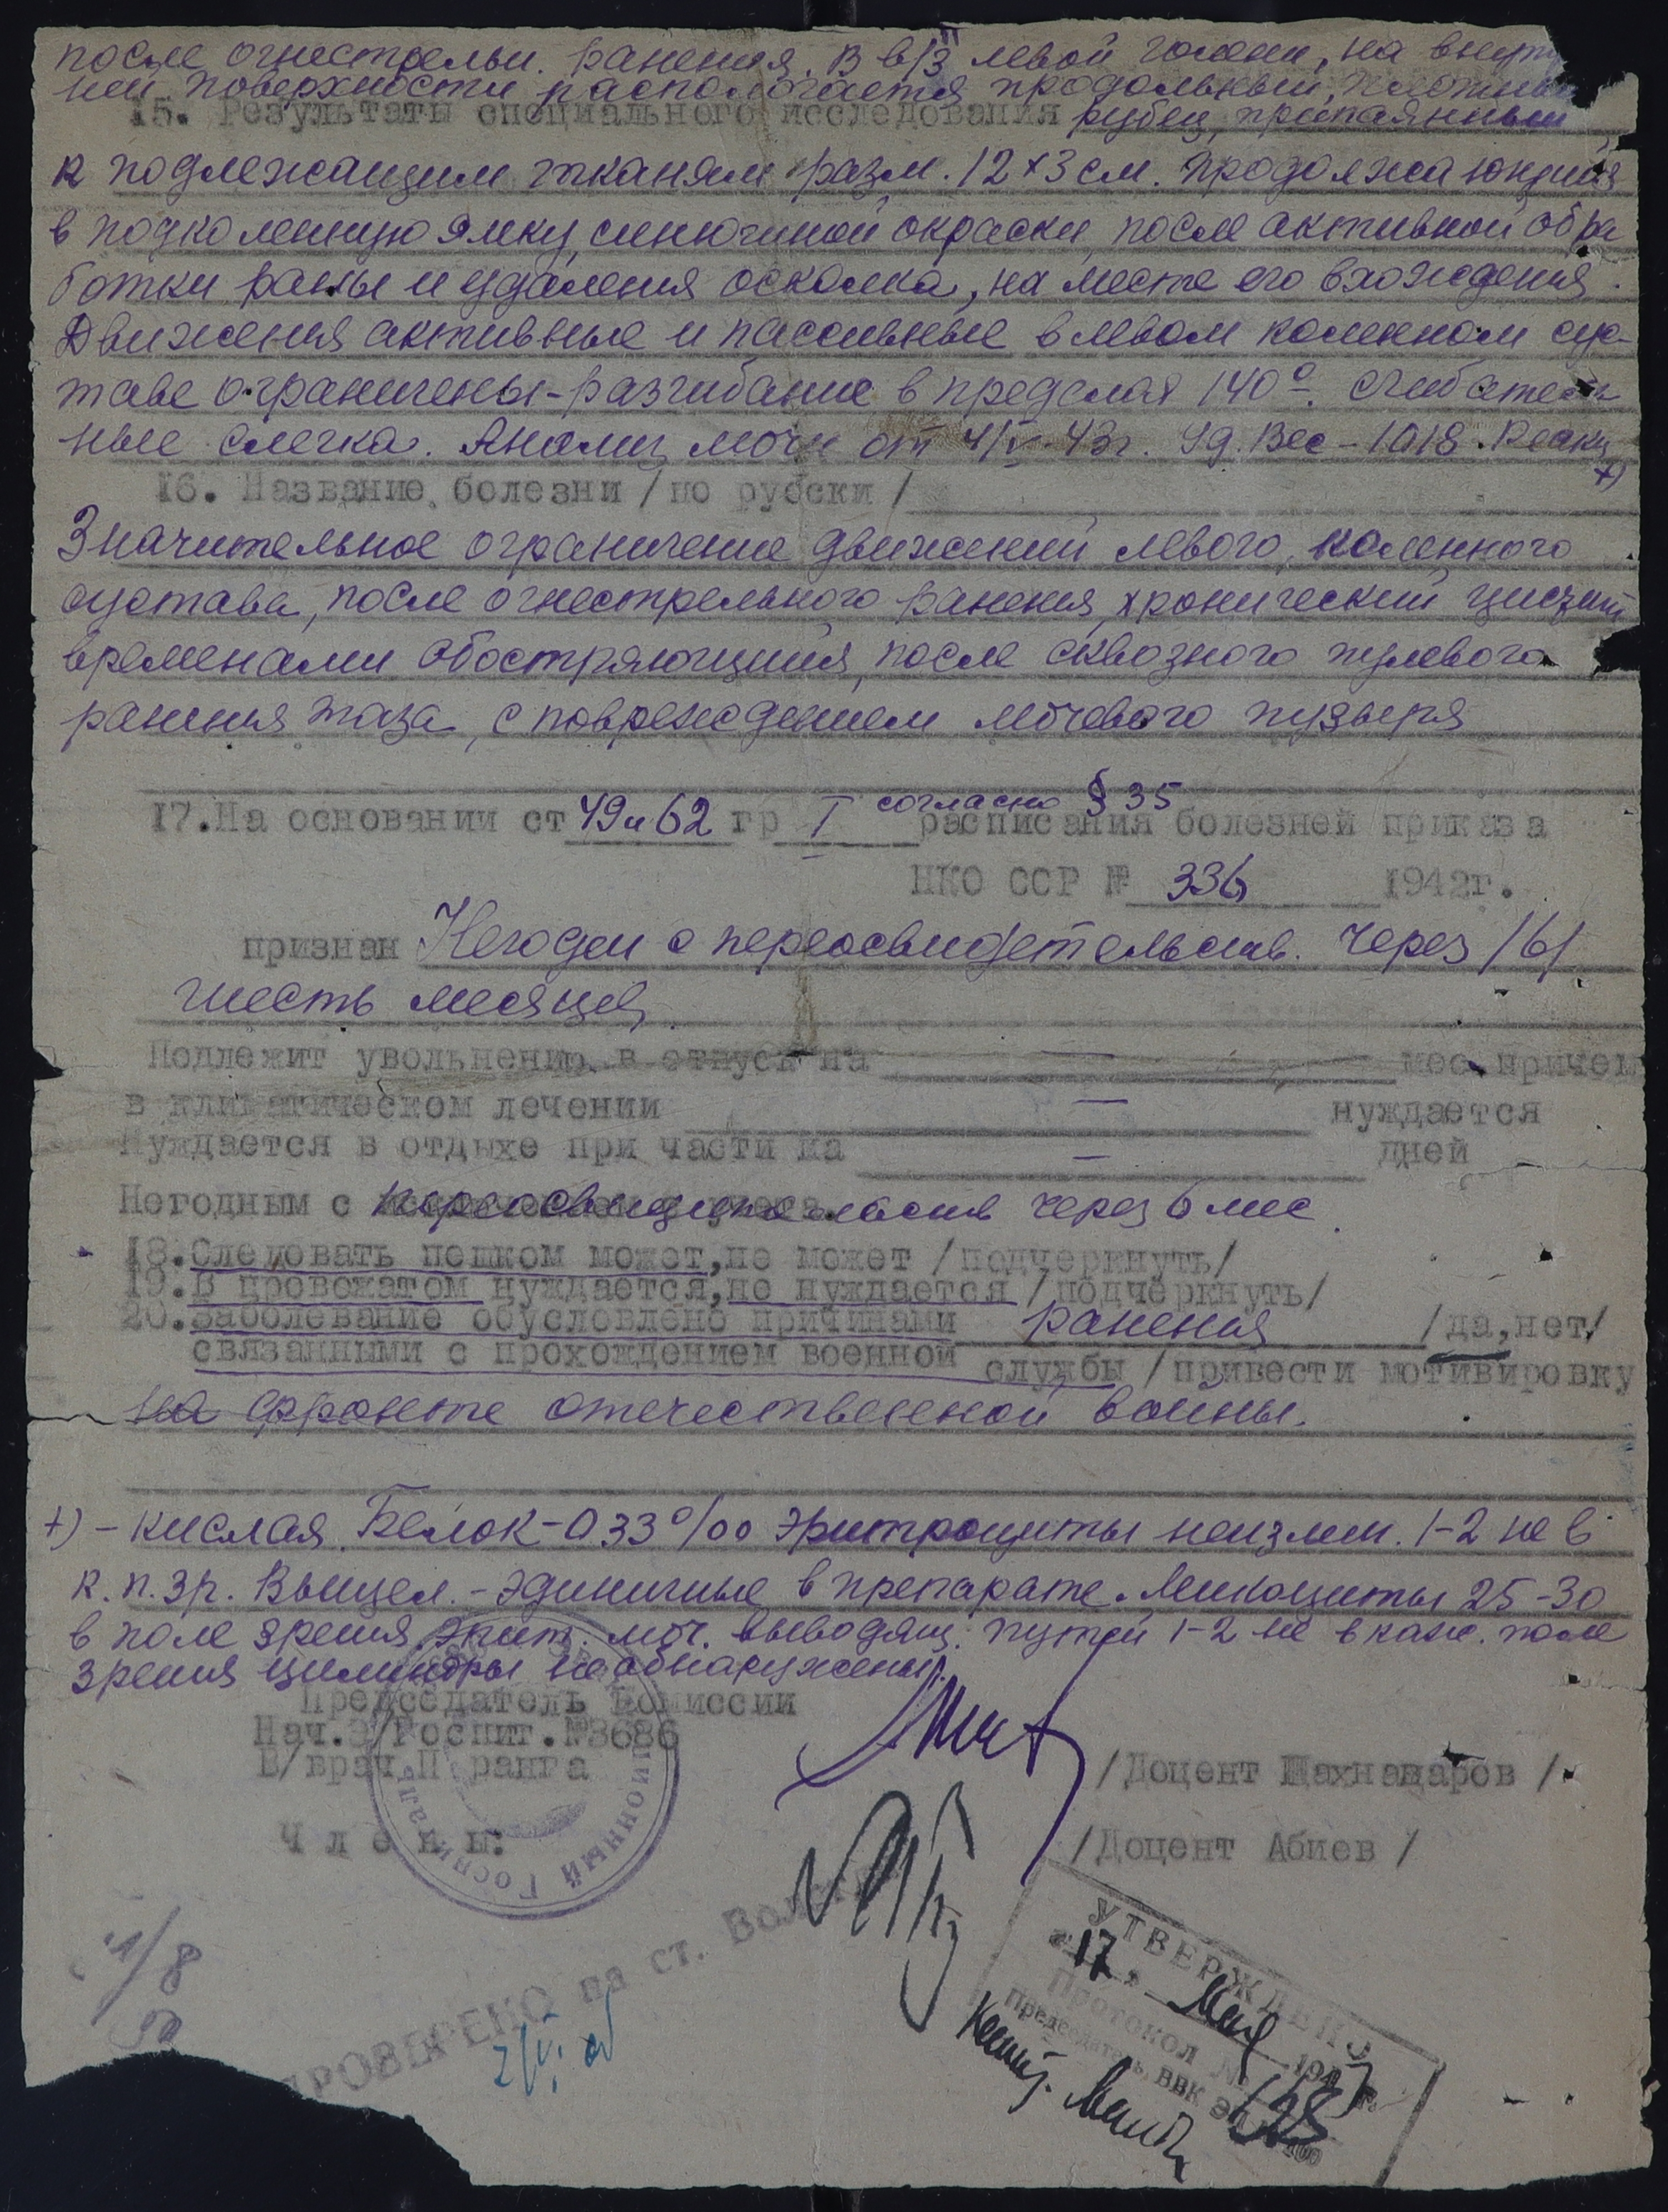 после огнестрельн. ранения. В в/3 левой голени, на внутр
ней поверхности распологается продольный, плотный
15. Результаты специального исследования рубец, припаянный
к подлежащим тканям разм. 12×3 см. продолжающийся
в подколенную ямку, синюшной окраски, после активной обра
ботки раны и удаления осколка, на месте его вхождения.
Движения активные и пассивные в левом коленном сус-
таве ограничены - разгибание в пределах 140°. сгибатель
ные слегка. Анализ мочи от 4/V-43г. Уд. Вес - 1018. Реакц
+)
16. Название болезни /по русски/
Значительное ограничение движений левого, коленного
сустава, после огнестрельного ранения, хронический цистит
временами обостряющийся, после сквозного пулевого
ранения таза, с повреждением мочевого пузыря
17. На основании ст 49 и 62 гр I согласно § 35 расписания болезней приказа
НКО ССР № 336 1942г.
признан Негоден с переосвидетельств. через /6/
шесть месяцев.
Подлежит увольнению в отпуск на — мес. причем
в климатическом лечении — нуждается
Нуждается в отдыхе при части на — дней
Негодным с переосвидетельств через 6 мес.
18. Следовать пешком может, не может /подчеркнуть/
19. В провожатом нуждается, не нуждается /подчеркнуть/
20. Заболевание обусловлено причинами ранения /да, нет/
связанными с прохождением военной службы /привести мотивировку
на фронте отечественной войны.
+) - кислая. Белок - 033 ‰ Эритроциты неизмен. 1-2 не в
к. п. зр. Выщел. - единичные в препарате. Лейкоциты 25-30
в поле зрения, эпит. моч. выводящ. путей 1-2 не в каж. поле
зрения цилиндры не обнаружены.
Председатель Комиссии
Нач. Э/Госпит. №3686
В/врач II ранга
/Доцент Шахназаров/
Члены:
/Доцент Абиев/
ионный Госпиталь
УТВЕРЖДЕНО
"17" Мая 1943 г.
Протокол № 128
Председатель ВВК
ПРОВЕРЕНО на ст.
1/8